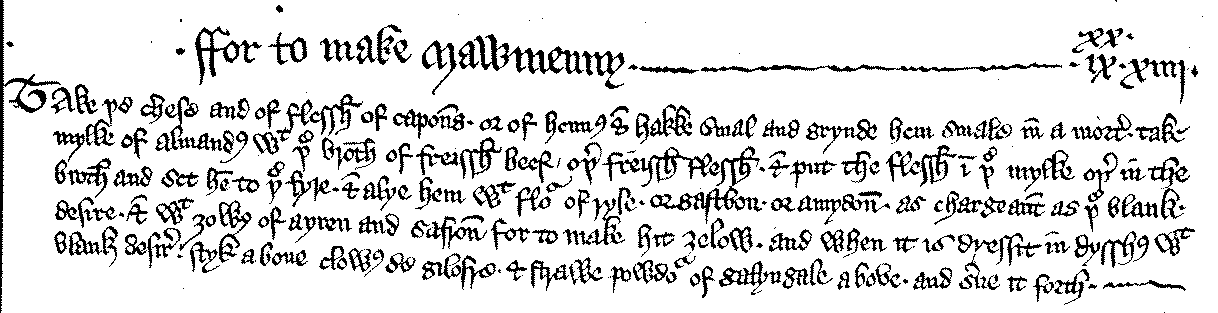 · ffor to make Mawmenny· xx· ·ix·xiiii·
Take þe chese and of flessħ of capon̄s· or of hennꝰ & hakke smal and grynde hem smale in̄ a morꝉ· take
mylke of almandꝰ wᵗ þᵒ broth̄ of freissħ beef, oþ̉ freissħ flessħ· & put the flessħ ī þᵒ mylke oþ̉ in̄ the
broth̄ and set hē to þᵒ fyre· & alye hem wᵗ floᵃ of ryse· or gastbon· or amydon̄· as chargeant̄ as þᵒ blank·
desire· & wᵗ ȝolꝰ of ayren and safron̄ for to make hit ȝelow· and when it is dressit in dysshꝰ wᵗ
blank desir̉· styk aboue clowꝰ de gilofre· & strawe powdoᵃ of galyngale above· and s̉ue it forth·